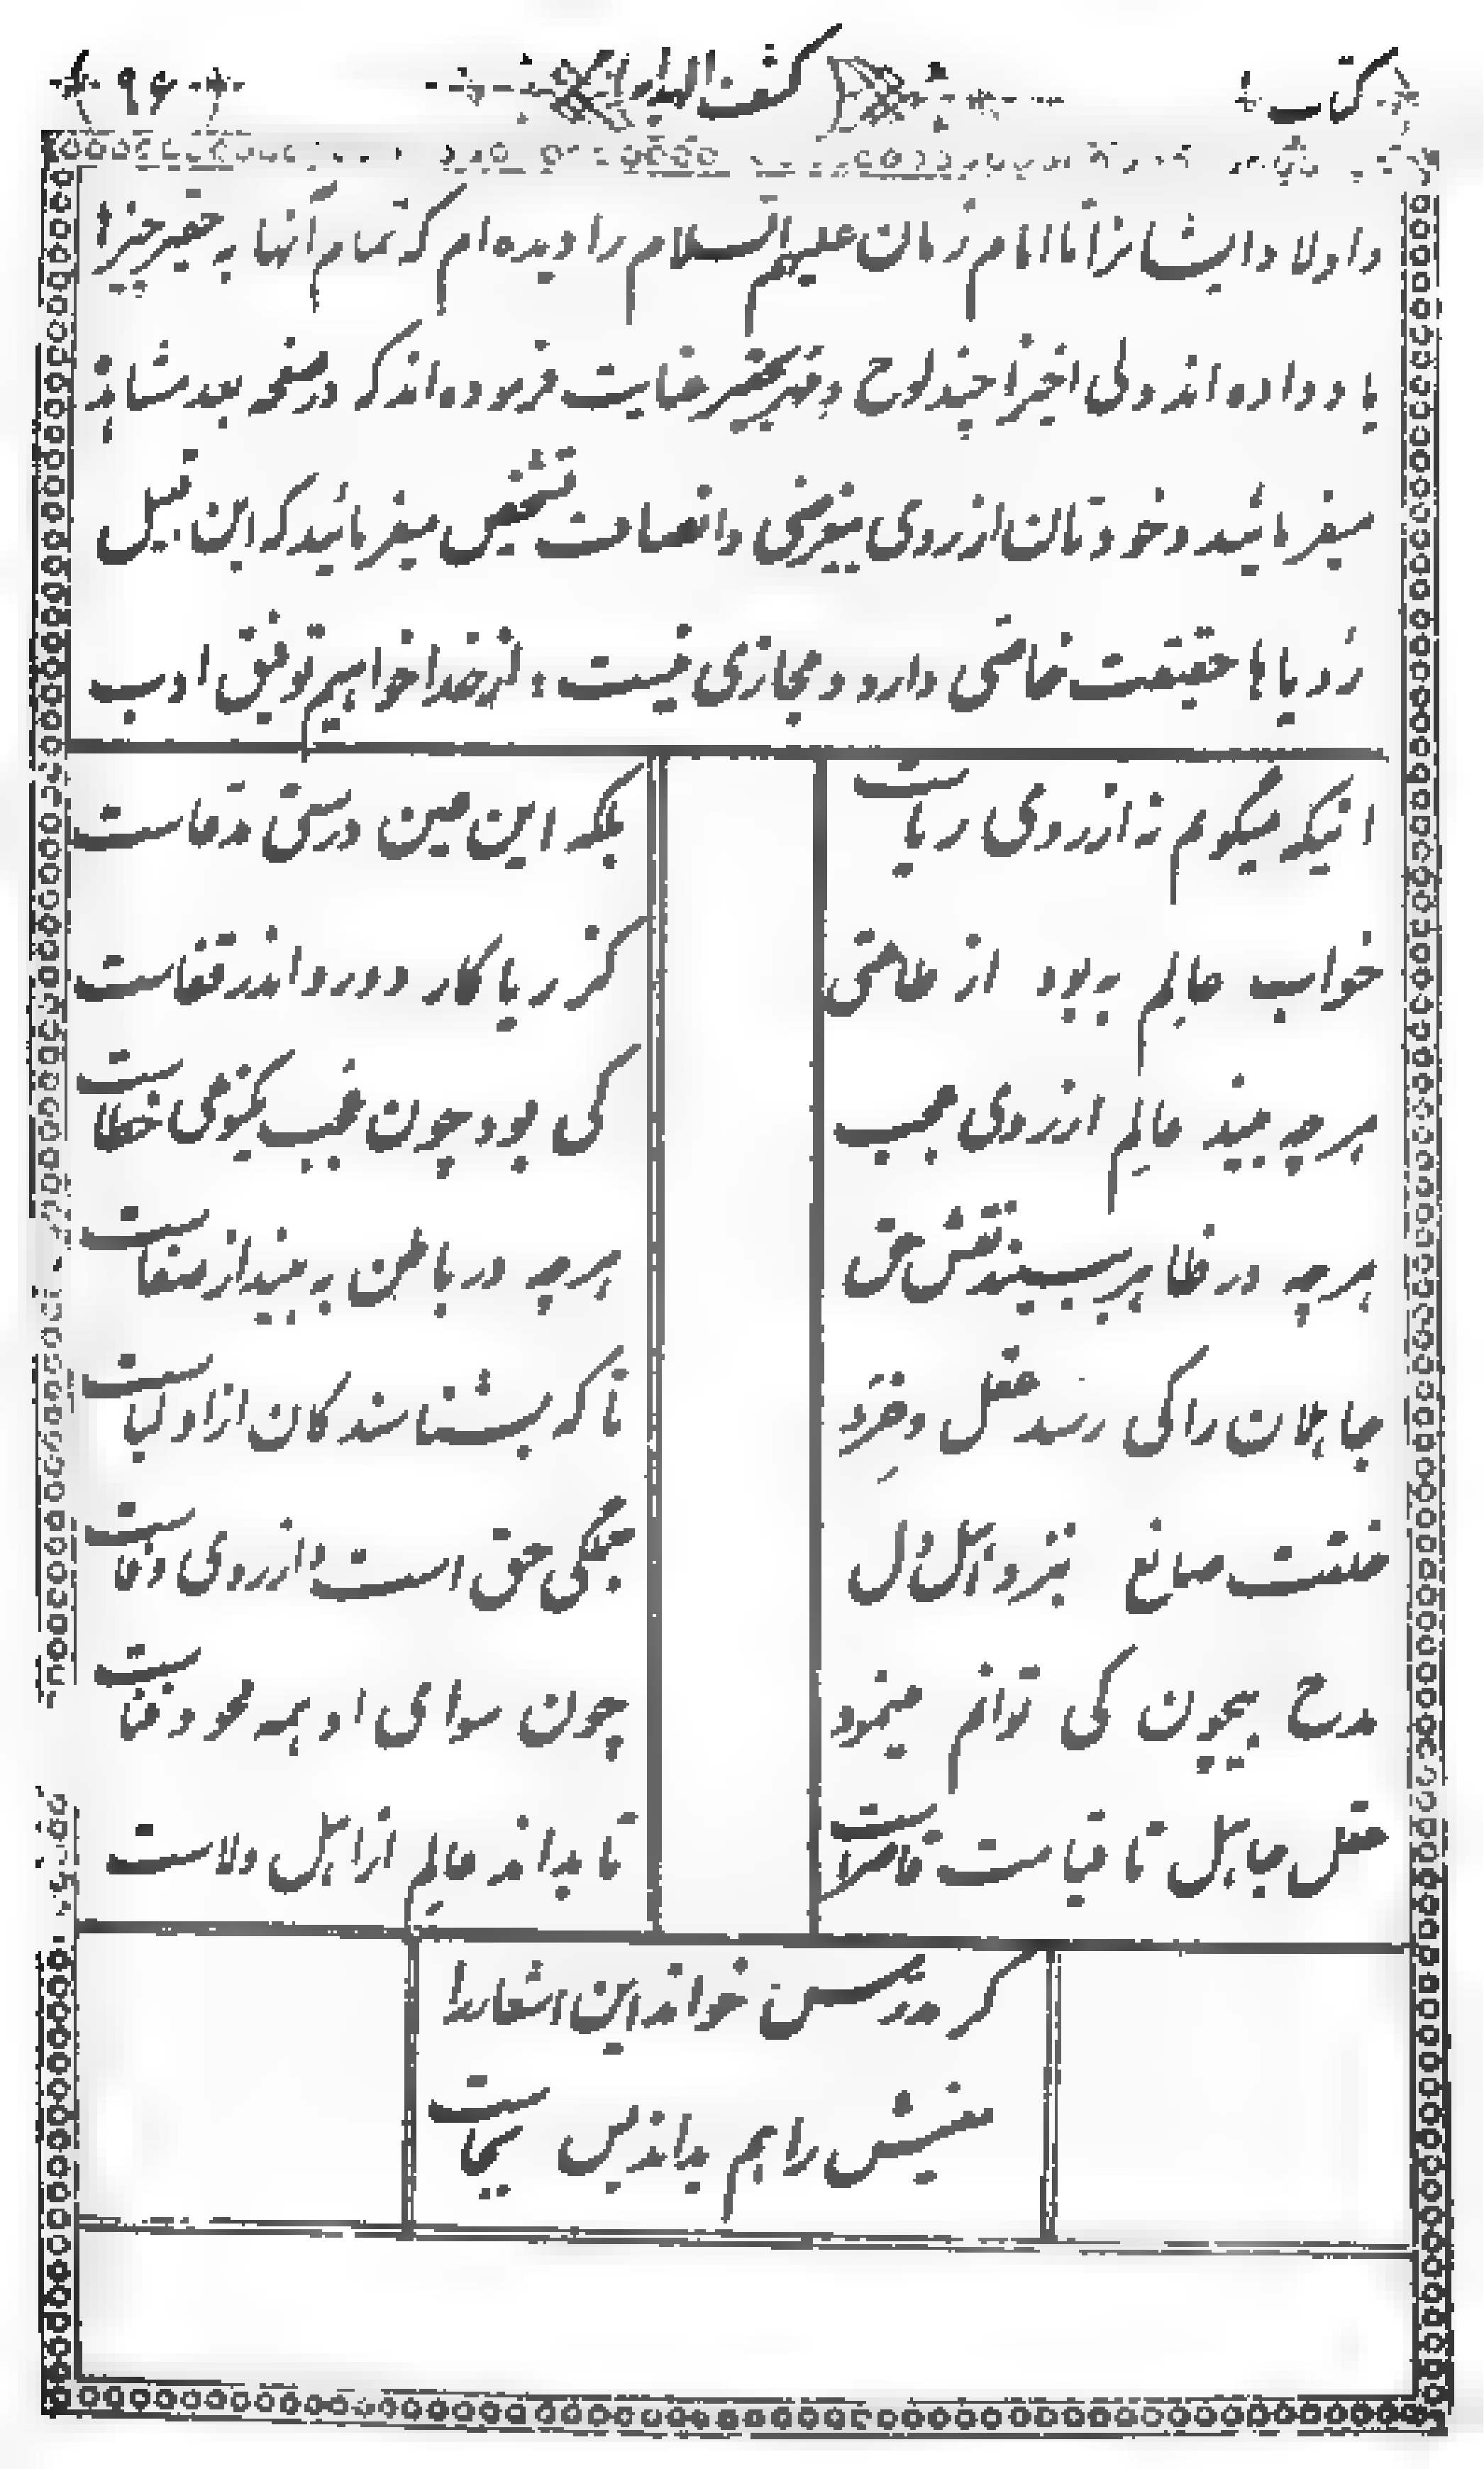 کتاب کشف الهدایه ۹۶
و اولاد ایشانرا تا امام زمان علیهم السلام را دیده‌ام که تمام آنها به حقیر چیزها
یاد داده‌اند ولی اخیرا چند لوح و مهر بحقیر عنایت فرموده‌اند که در صفحه بعد مشاهده
میفرمائید و خودتان از روی بیغرضی و انصاف تشخیص میفرمائید که این قبیل
رؤیاها حقیقت خاصی دارد و مجازی نیست : از خدا خواهیم توفیق ادب
اینکه میگویم نه از روی ریاست بلکه این عین درستی مدعاست
خواب عالم به بود از طاعتی کز ریا کار دورو اندر قفاست
هر چه بیند عالم از روی عجب کی بود چون عجب نیکوئی خطاست
هر چه در ظاهر ببیند نقش حق هر چه در باطن به بیند از صفاست
جاهلان را کی رسد عقل و خرد تا که بشناسند کان از اولیاست
خلقت صانع نزد اهل دل جملگی حق است و از روی وفاست
مدح بیچون کی توانم مینمود چون سوای او همه محو و فناست
عقل جاهل تا قیامت قاصر است تا بداند عالم از اهل ولاست
گر مدرس خواند این اشعار را
معنیش را هم بداند پس بجاست